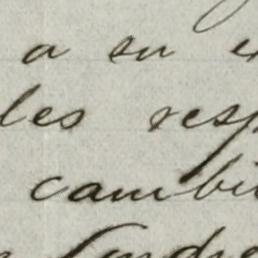 a su e
les resp
cambi